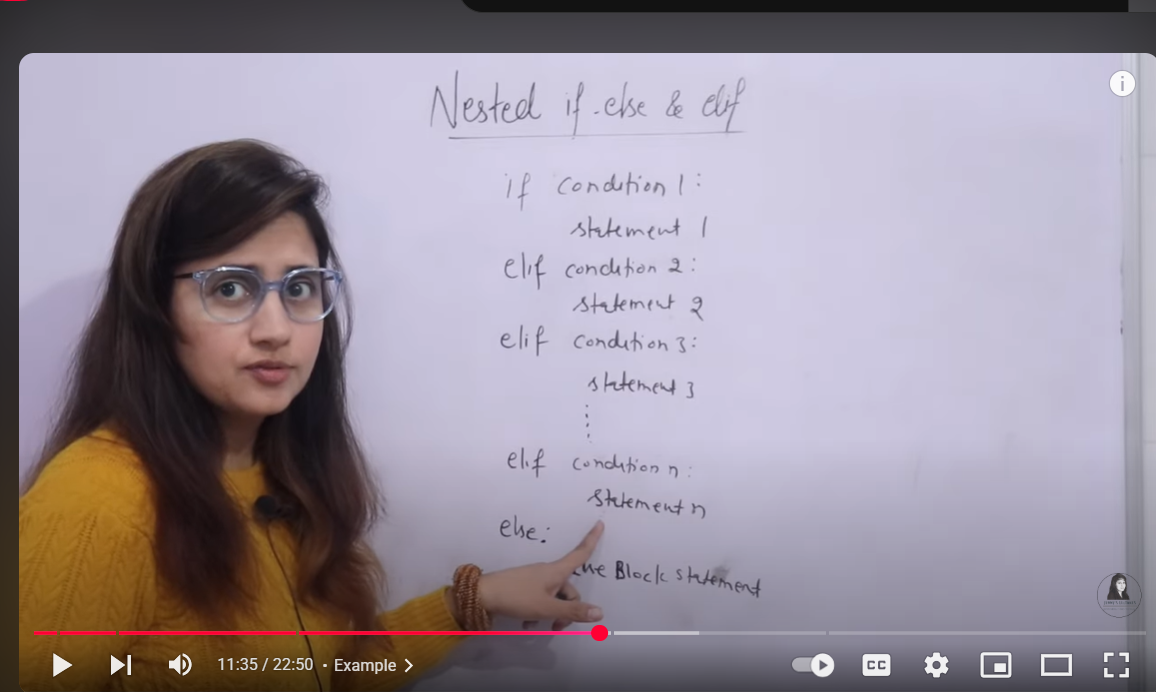 Nested if-else & elif
if condition 1:
statement 1
elif condition 2:
statement 2
elif condition 3:
statement 3
elif condition n:
statement n
else:
Block statement
11:35 / 22:50 • Example
CC